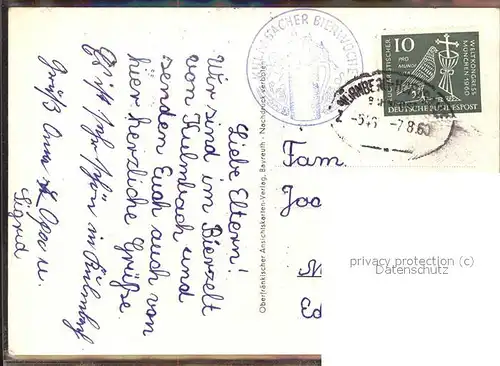 Liebe Eltern!
Wir sind im Bierzelt
von Kulmbach und
senden Euch auch von
hier herzliche Grüße.
Es ist sehr schön in Kulmbach
Gruß Anna & Opa u.
Sigrid
Oberfränkischer Ansichtskarten-Verlag, Bayreuth · Nachdruck verboten
KULMBACHER BIERWOCHE
10
PRO MUNDI
EUCHARISTISCHER
WELTKONGRESS
MÜNCHEN 1960
DEUTSCHE BUNDESPOST
NÜRNBERG
-7.8.60
Fam.
privacy protection
Datenschutz